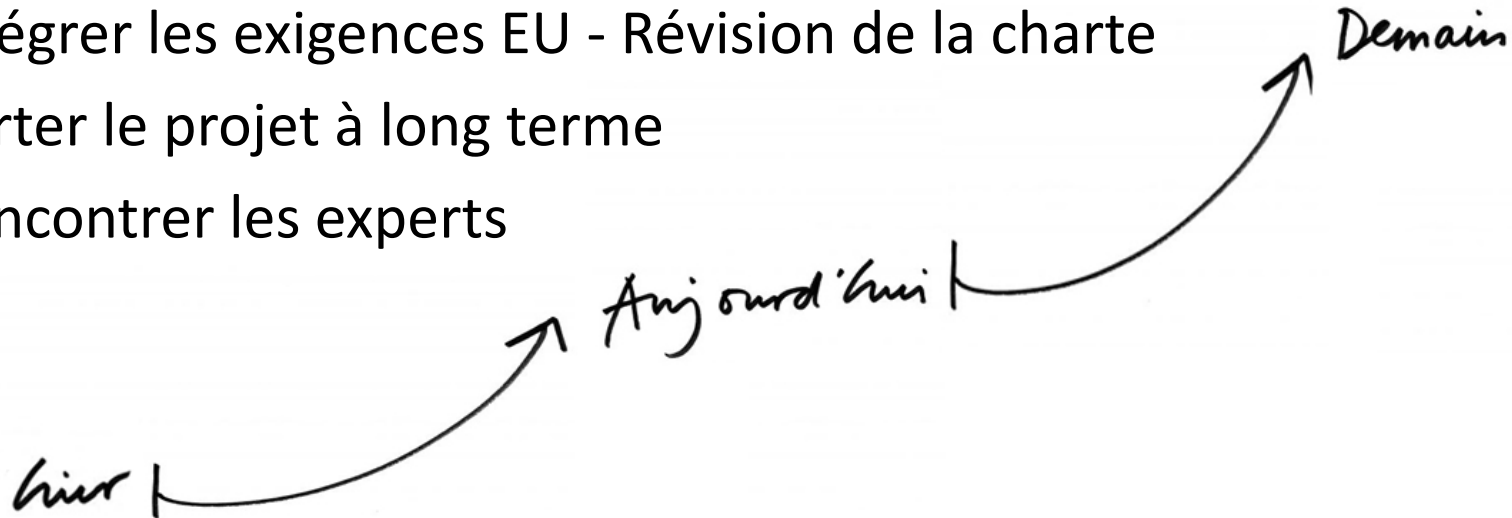 égrer les exigences EU - Révision de la charte
Demain
rter le projet à long terme
ncontrer les experts
Aujourd'hui
hier